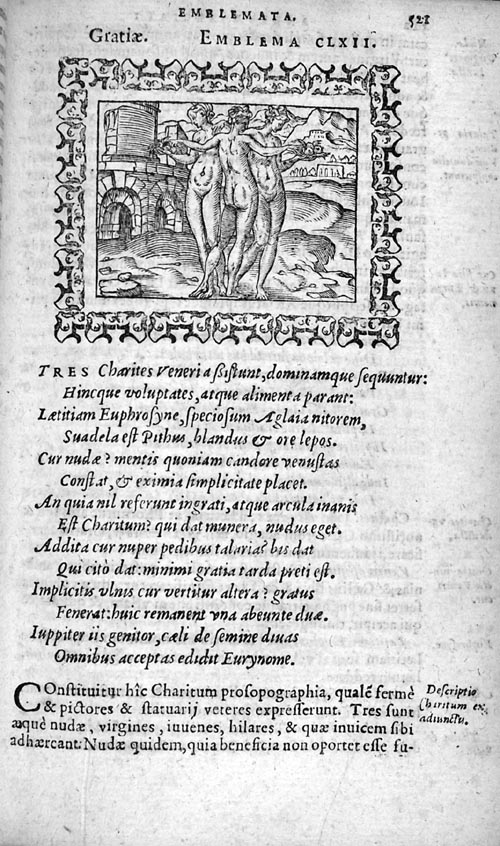 EMBLEMATA. 521
Gratiæ. EMBLEMA CLXII.
TRES Charites Veneri aßistunt, dominamque sequuntur:
Hincque voluptates, atque alimenta parant:
Lætitiam Euphrosyne, speciosum Aglaia nitorem,
Suadela est Pithus, blandus & ore lepos.
Cur nudæ? mentis quoniam candore venustas
Constat, & eximia simplicitate placet.
An quia nil referunt ingrati, atque arcula inanis
Est Charitum? qui dat munera, nudus eget.
Addita cur nuper pedibus talaria? bis dat
Qui citò dat: minimi gratia tarda preti est.
Implicitis vlnis cur vertitur altera? gratus
Fenerat: huic remanent vna abeunte duæ.
Iuppiter iis genitor, cæli de semine diuas
Omnibus acceptas edidit Eurynome.
COnstituitur hîc Charitum prosopographia, qualẽ fermè
& pictores & statuarij veteres expresserunt. Tres sunt
æquè nudæ, virgines, iuuenes, hilares, & quæ inuicem sibi
adhærcant: Nudæ quidem, quia beneficia non oportet esse fu-
Descriptio
Charitum ex
adiunctis.